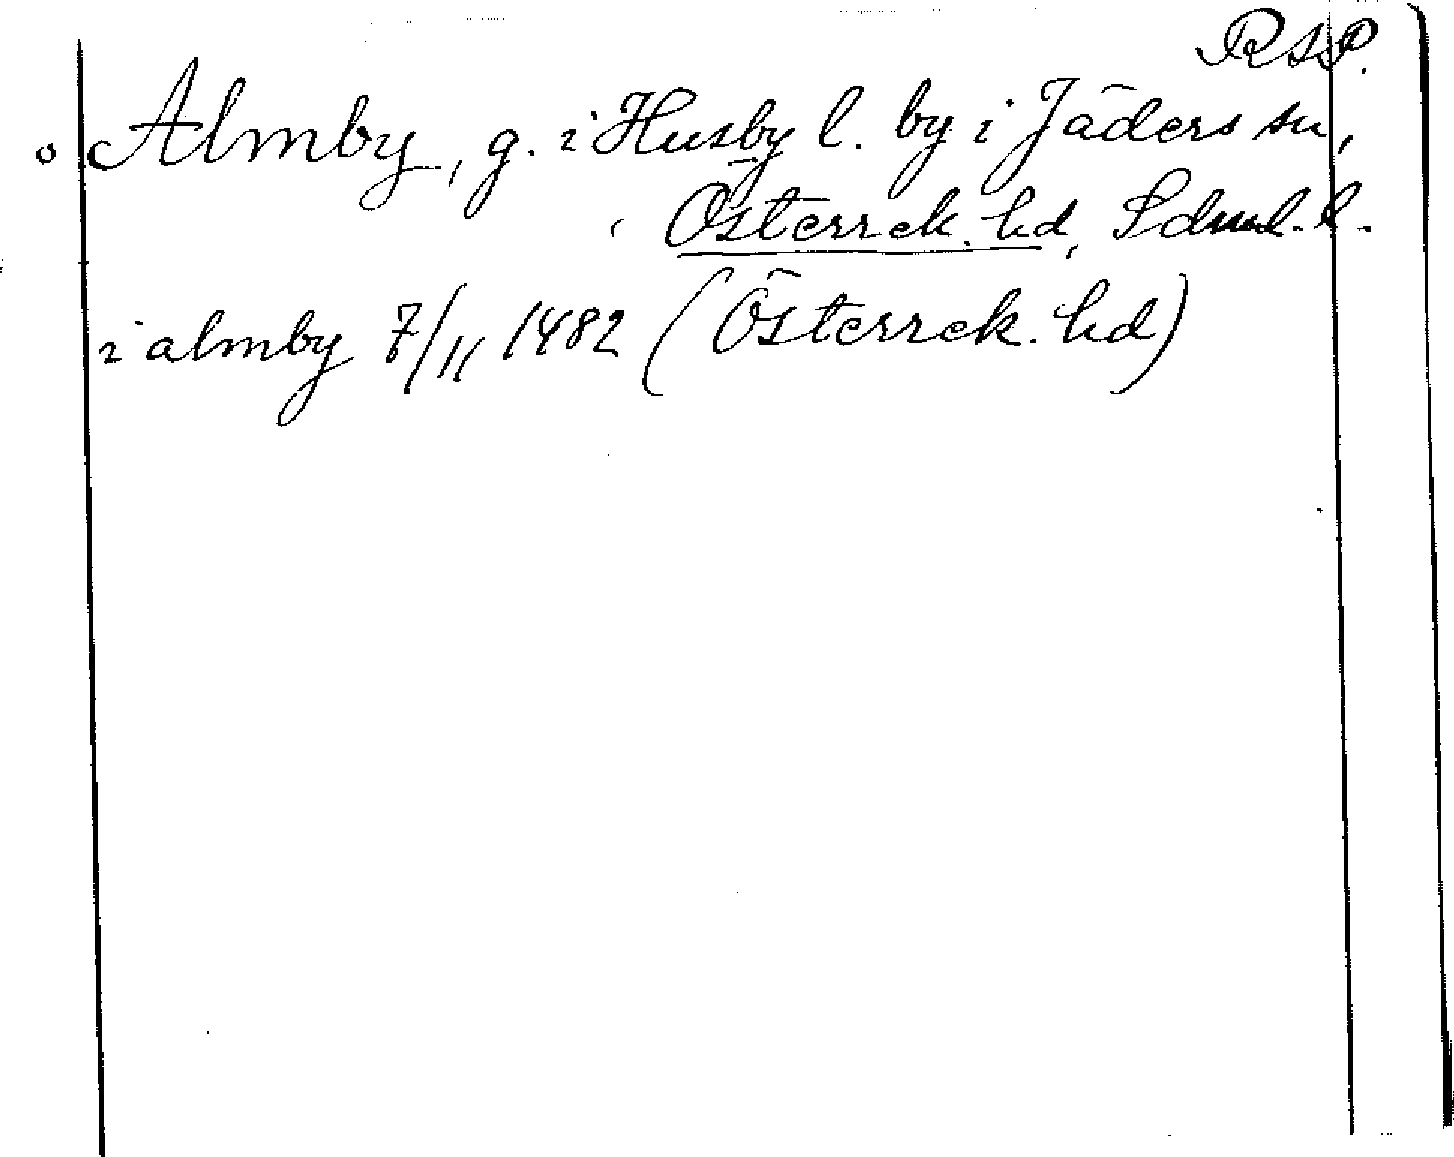 RSP.
o Almby, g. i Husby l. by i Jäders sn,
Österrek. hd, Sdml. l.
i almby 7/11 1482 (Österrek. hd)